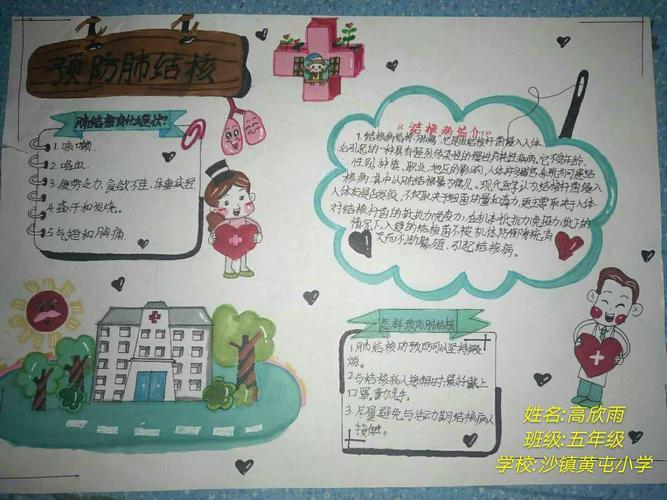 预防肺结核
肺结核有什么症状?
1.咳嗽.
2.咯血.
3.疲劳乏力,食欲不佳,体重减轻
4.盗汗和发烧.
5.气短和胸痛.
《结核病简介》
1.结核病俗称"痨病",它是由结核杆菌侵入人体
后引起的一种具有强烈传染性的慢性消耗性疾病,它不受年龄、
性别、种族、职业、地区的影响,人体许多器官系统均可患结
核病,其中以肺结核最为常见。现代医学认为结核杆菌侵入
人体后是否发病,不仅取决于细菌的量和毒力,更主要取决于人体
对结核杆菌的抵抗力(免疫力),在机体抵抗力(免疫力)低下的
情况下,入侵的结核菌不被机体防御系统消
灭而不断繁殖,引起结核病。
怎样预防肺结核
1.肺结核的预防可以坚持锻
炼。
2.与结核病人接触时最好戴上
口罩。勤洗手。
3.尽量避免与活动期结核病人
接触。
姓名:高欣雨
班级:五年级
学校:沙镇黄屯小学